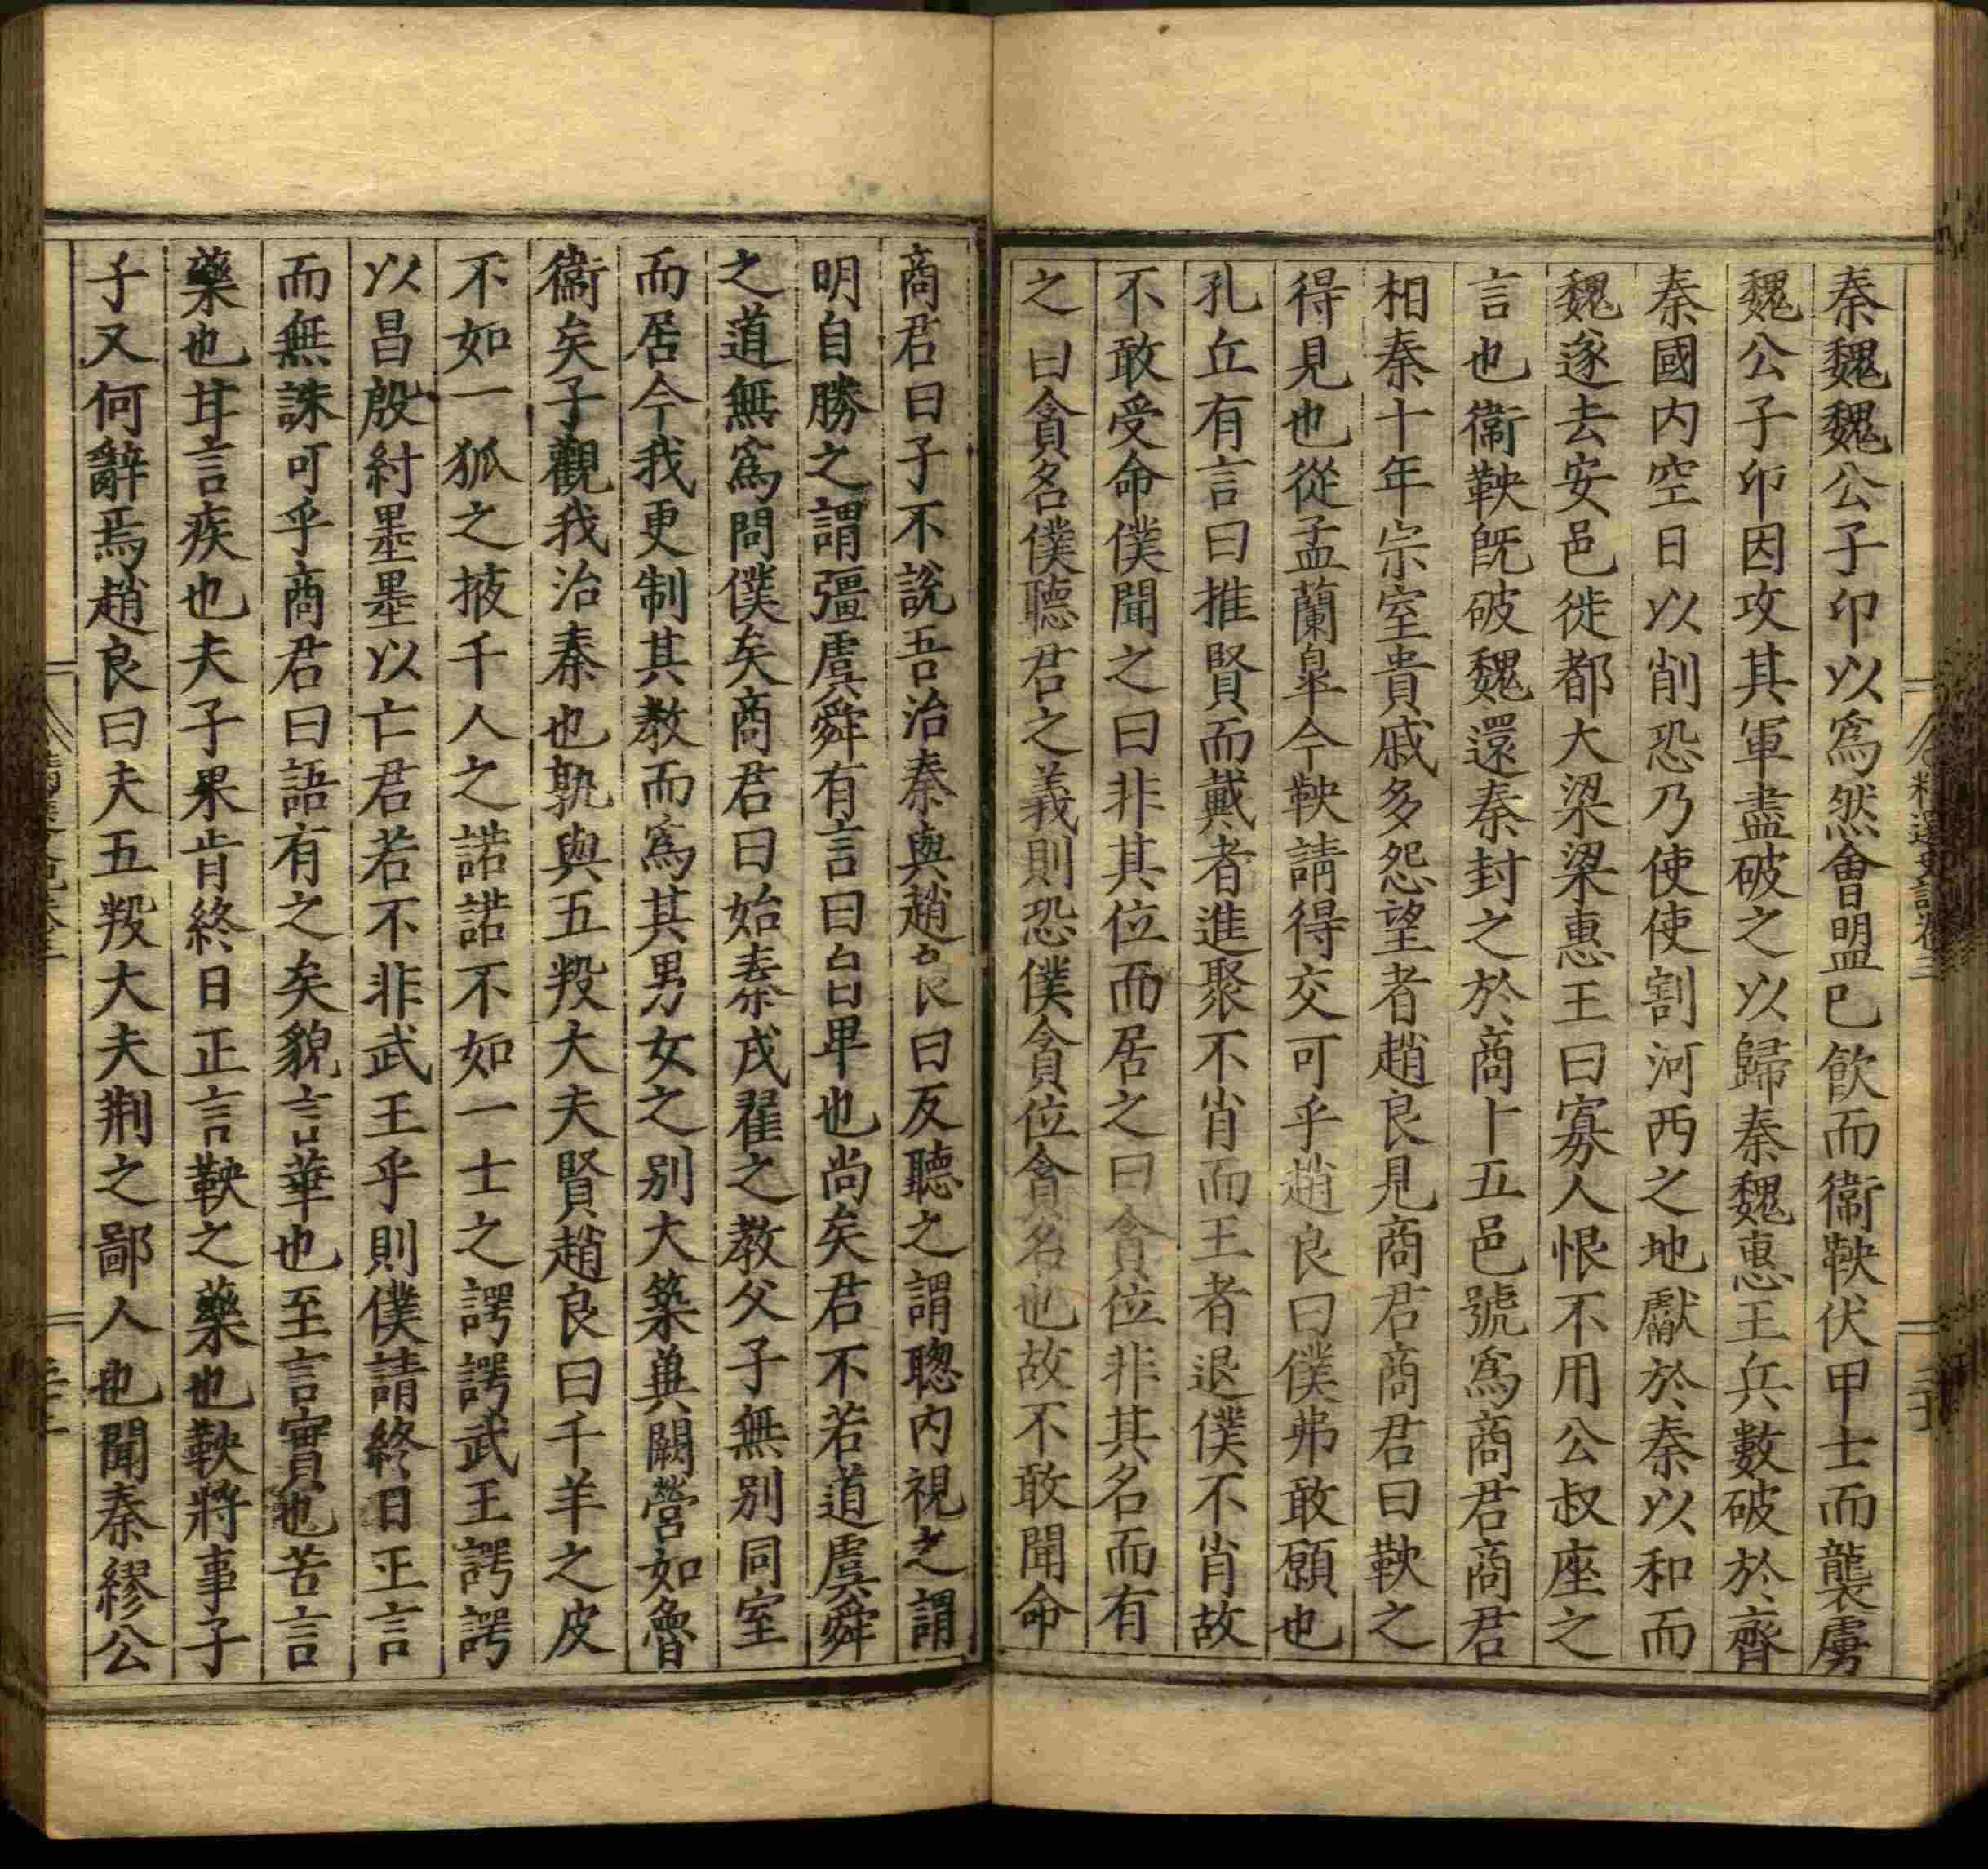 秦魏魏公子卬以爲然會盟已飮而衞鞅伏甲士而襲虜
魏公子卬因攻其軍盡破之以歸秦魏惠王兵數破於齊
秦國内空日以削恐乃使使割河西之地獻於秦以和而
魏遂去安邑徙都大梁梁惠王曰寡人恨不用公叔座之
言也衞鞅旣破魏還秦封之於商十五邑號爲商君商君
相秦十年宗室貴戚多怨望者趙良見商君商君曰鞅之
得見也從孟蘭臯今鞅請得交可乎趙良曰僕弗敢願也
孔丘有言曰推賢而戴者進聚不肖而王者退僕不肖故
不敢受命僕聞之曰非其位而居之曰貪位非其名而有
之曰貪名僕聽君之義則恐僕貪位貪名也故不敢聞命
商君曰子不說吾治秦與趙良曰反聽之謂聰内視之謂
明自勝之謂彊虞舜有言曰自畢也尚矣君不若道虞舜
之道無爲問僕矣商君曰始秦戎翟之教父子無別同室
而居今我更制其教而爲其男女之別大築兾闕營如魯
衞矣子觀我治秦也孰與五羖大夫賢趙良曰千羊之皮
不如一狐之掖千人之諾諾不如一士之諤諤武王諤諤
以昌殷紂墨墨以亡君若不非武王乎則僕請終日正言
而無誅可乎商君曰語有之矣貌言華也至言實也苦言
藥也甘言疾也夫子果肯終日正言鞅之藥也鞅將事子
子又何辭焉趙良曰夫五羖大夫荆之鄙人也聞秦繆公